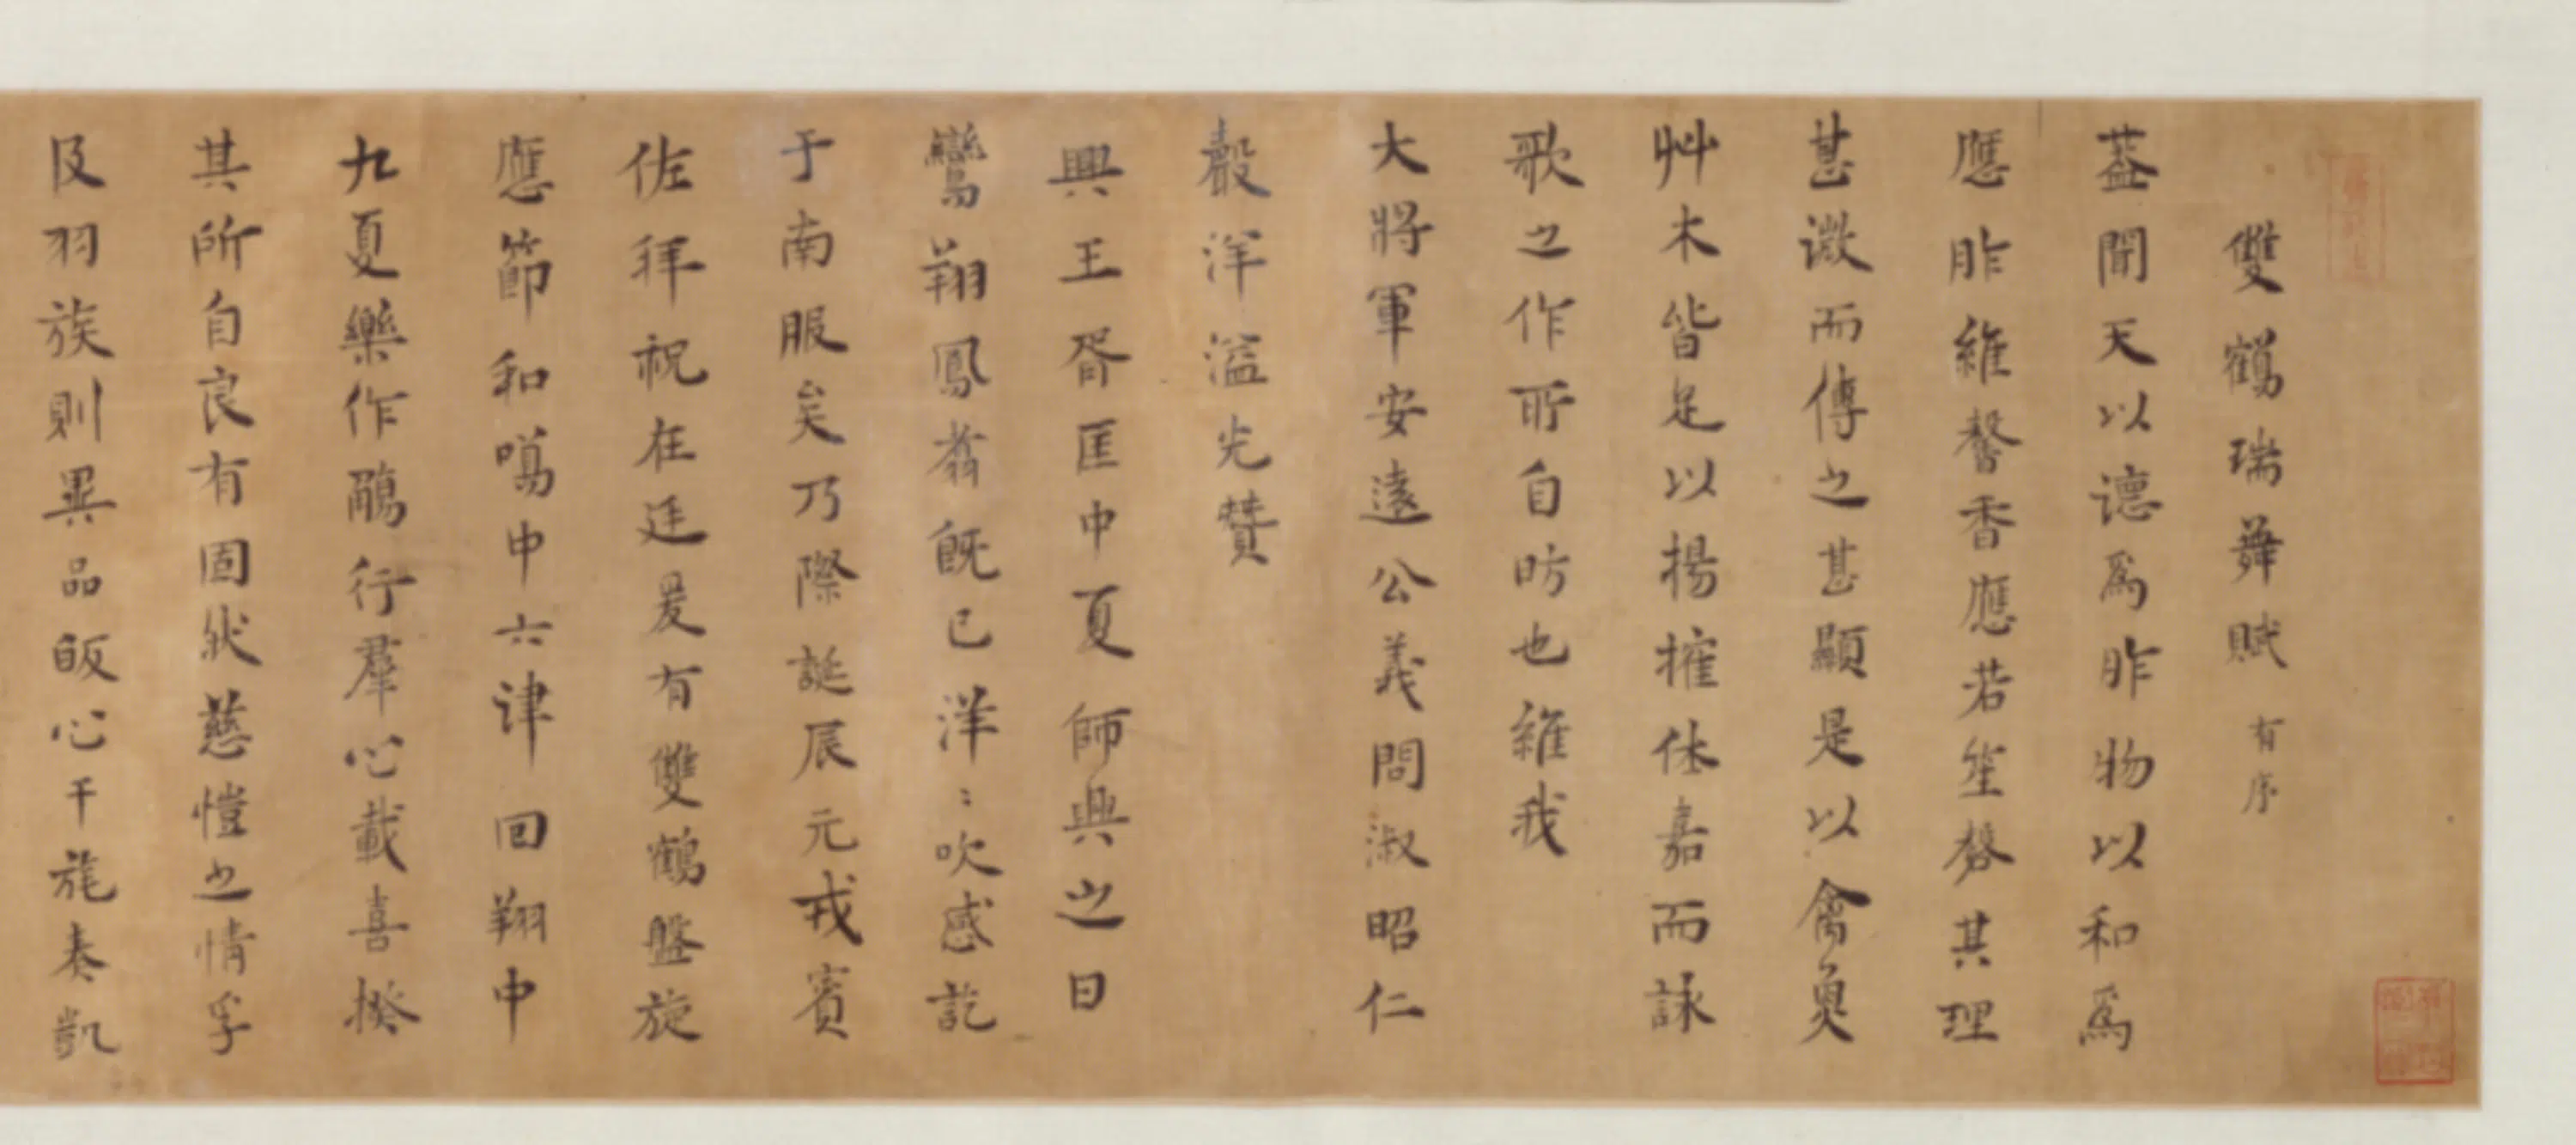 雙鶴瑞舞賦 有序
葢聞天以德爲胙物以和爲
應胙維馨香應若笙磬其理
甚微而傳之甚顯是以禽奠
艸木皆足以揚搉休嘉而詠
歌之作所自昉也維我
大將軍安遠公義問淑昭仁
聲洋溢光贊
興王胥匡中夏師興之日
鸞翔鳳翥旣已洋〻吹感訖
于南服矣乃際誕辰元戎賓
佐拜祝在廷爰有雙鶴盤旋
應節和鳴中六律回翔中
九夏樂作鷸行羣心載喜揆
其所自良有固狀慈愷之情孚
及羽族則異品皈心干旄奏凱